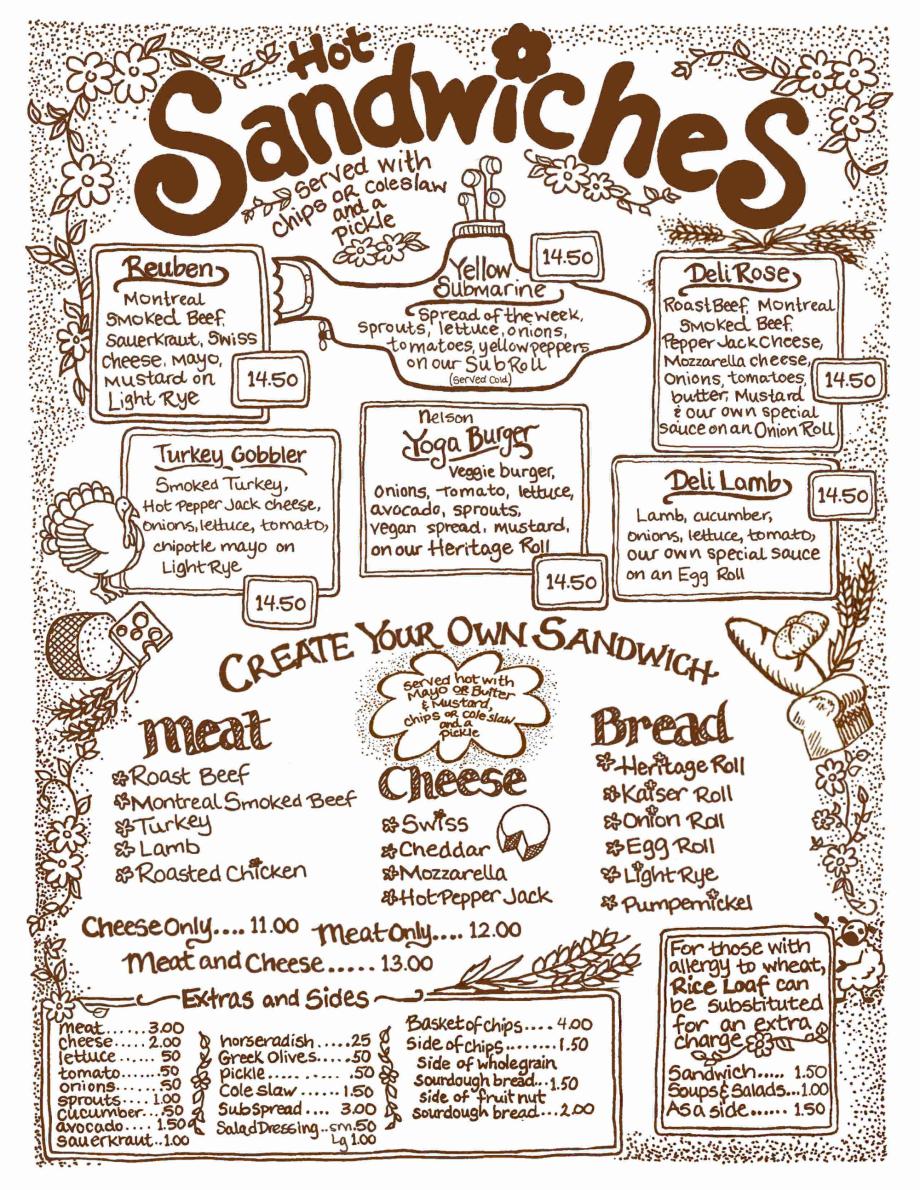 Hot
Sandwiches
served with
chips or coleslaw
and a
pickle
Reuben
Montreal
Smoked Beef,
Sauerkraut, Swiss
Cheese, Mayo,
Mustard on
Light Rye
14.50
Yellow
Submarine
14.50
Spread of the week,
sprouts, lettuce, onions,
tomatoes, yellow peppers
on our Sub Roll
(Served Cold)
Deli Rose
Roast Beef, Montreal
Smoked Beef,
Pepper Jack Cheese,
Mozzarella cheese,
Onions, tomatoes,
butter, Mustard
& our own special
sauce on an Onion Roll
14.50
Turkey Gobbler
Smoked Turkey,
Hot Pepper Jack cheese,
onions, lettuce, tomato,
chipotle mayo on
Light Rye
14.50
Nelson
Yoga Burger
Veggie burger,
Onions, tomato, lettuce,
avocado, sprouts,
vegan spread, mustard,
on our Heritage Roll
14.50
Deli Lamb
14.50
Lamb, cucumber,
onions, lettuce, tomato,
our own special sauce
on an Egg Roll
Create Your Own Sandwich
served hot with
Mayo or Butter
& Mustard,
chips or coleslaw
and a
pickle
Meat
Roast Beef
Montreal Smoked Beef
Turkey
Lamb
Roasted Chicken
Cheese
Swiss
Cheddar
Mozzarella
Hot Pepper Jack
Bread
Heritage Roll
Kaiser Roll
Onion Roll
Egg Roll
Light Rye
Pumpernickel
Cheese Only.... 11.00
Meat Only.... 12.00
Meat and Cheese ..... 13.00
Extras and Sides
meat......3.00
cheese.....2.00
lettuce...... 50
tomato.....50
onions.....50
sprouts....1.00
cucumber...50
avocado....1.50
sauerkraut..1.00
horseradish.....25
Greek Olives.....50
pickle...........50
Cole slaw......1.50
Sub Spread .... 3.00
Salad Dressing...sm.50
Lg 1.00
Basket of chips.... 4.00
Side of chips........1.50
Side of whole grain
sourdough bread...1.50
side of fruit nut
sourdough bread...2.00
For those with
allergy to wheat,
Rice Loaf can
be substituted
for an extra
charge
Sandwich..... 1.50
Soups & Salads...1.00
As a side...... 1.50